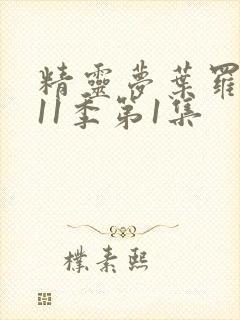 精靈夢葉羅
11季第1集
樸素熙